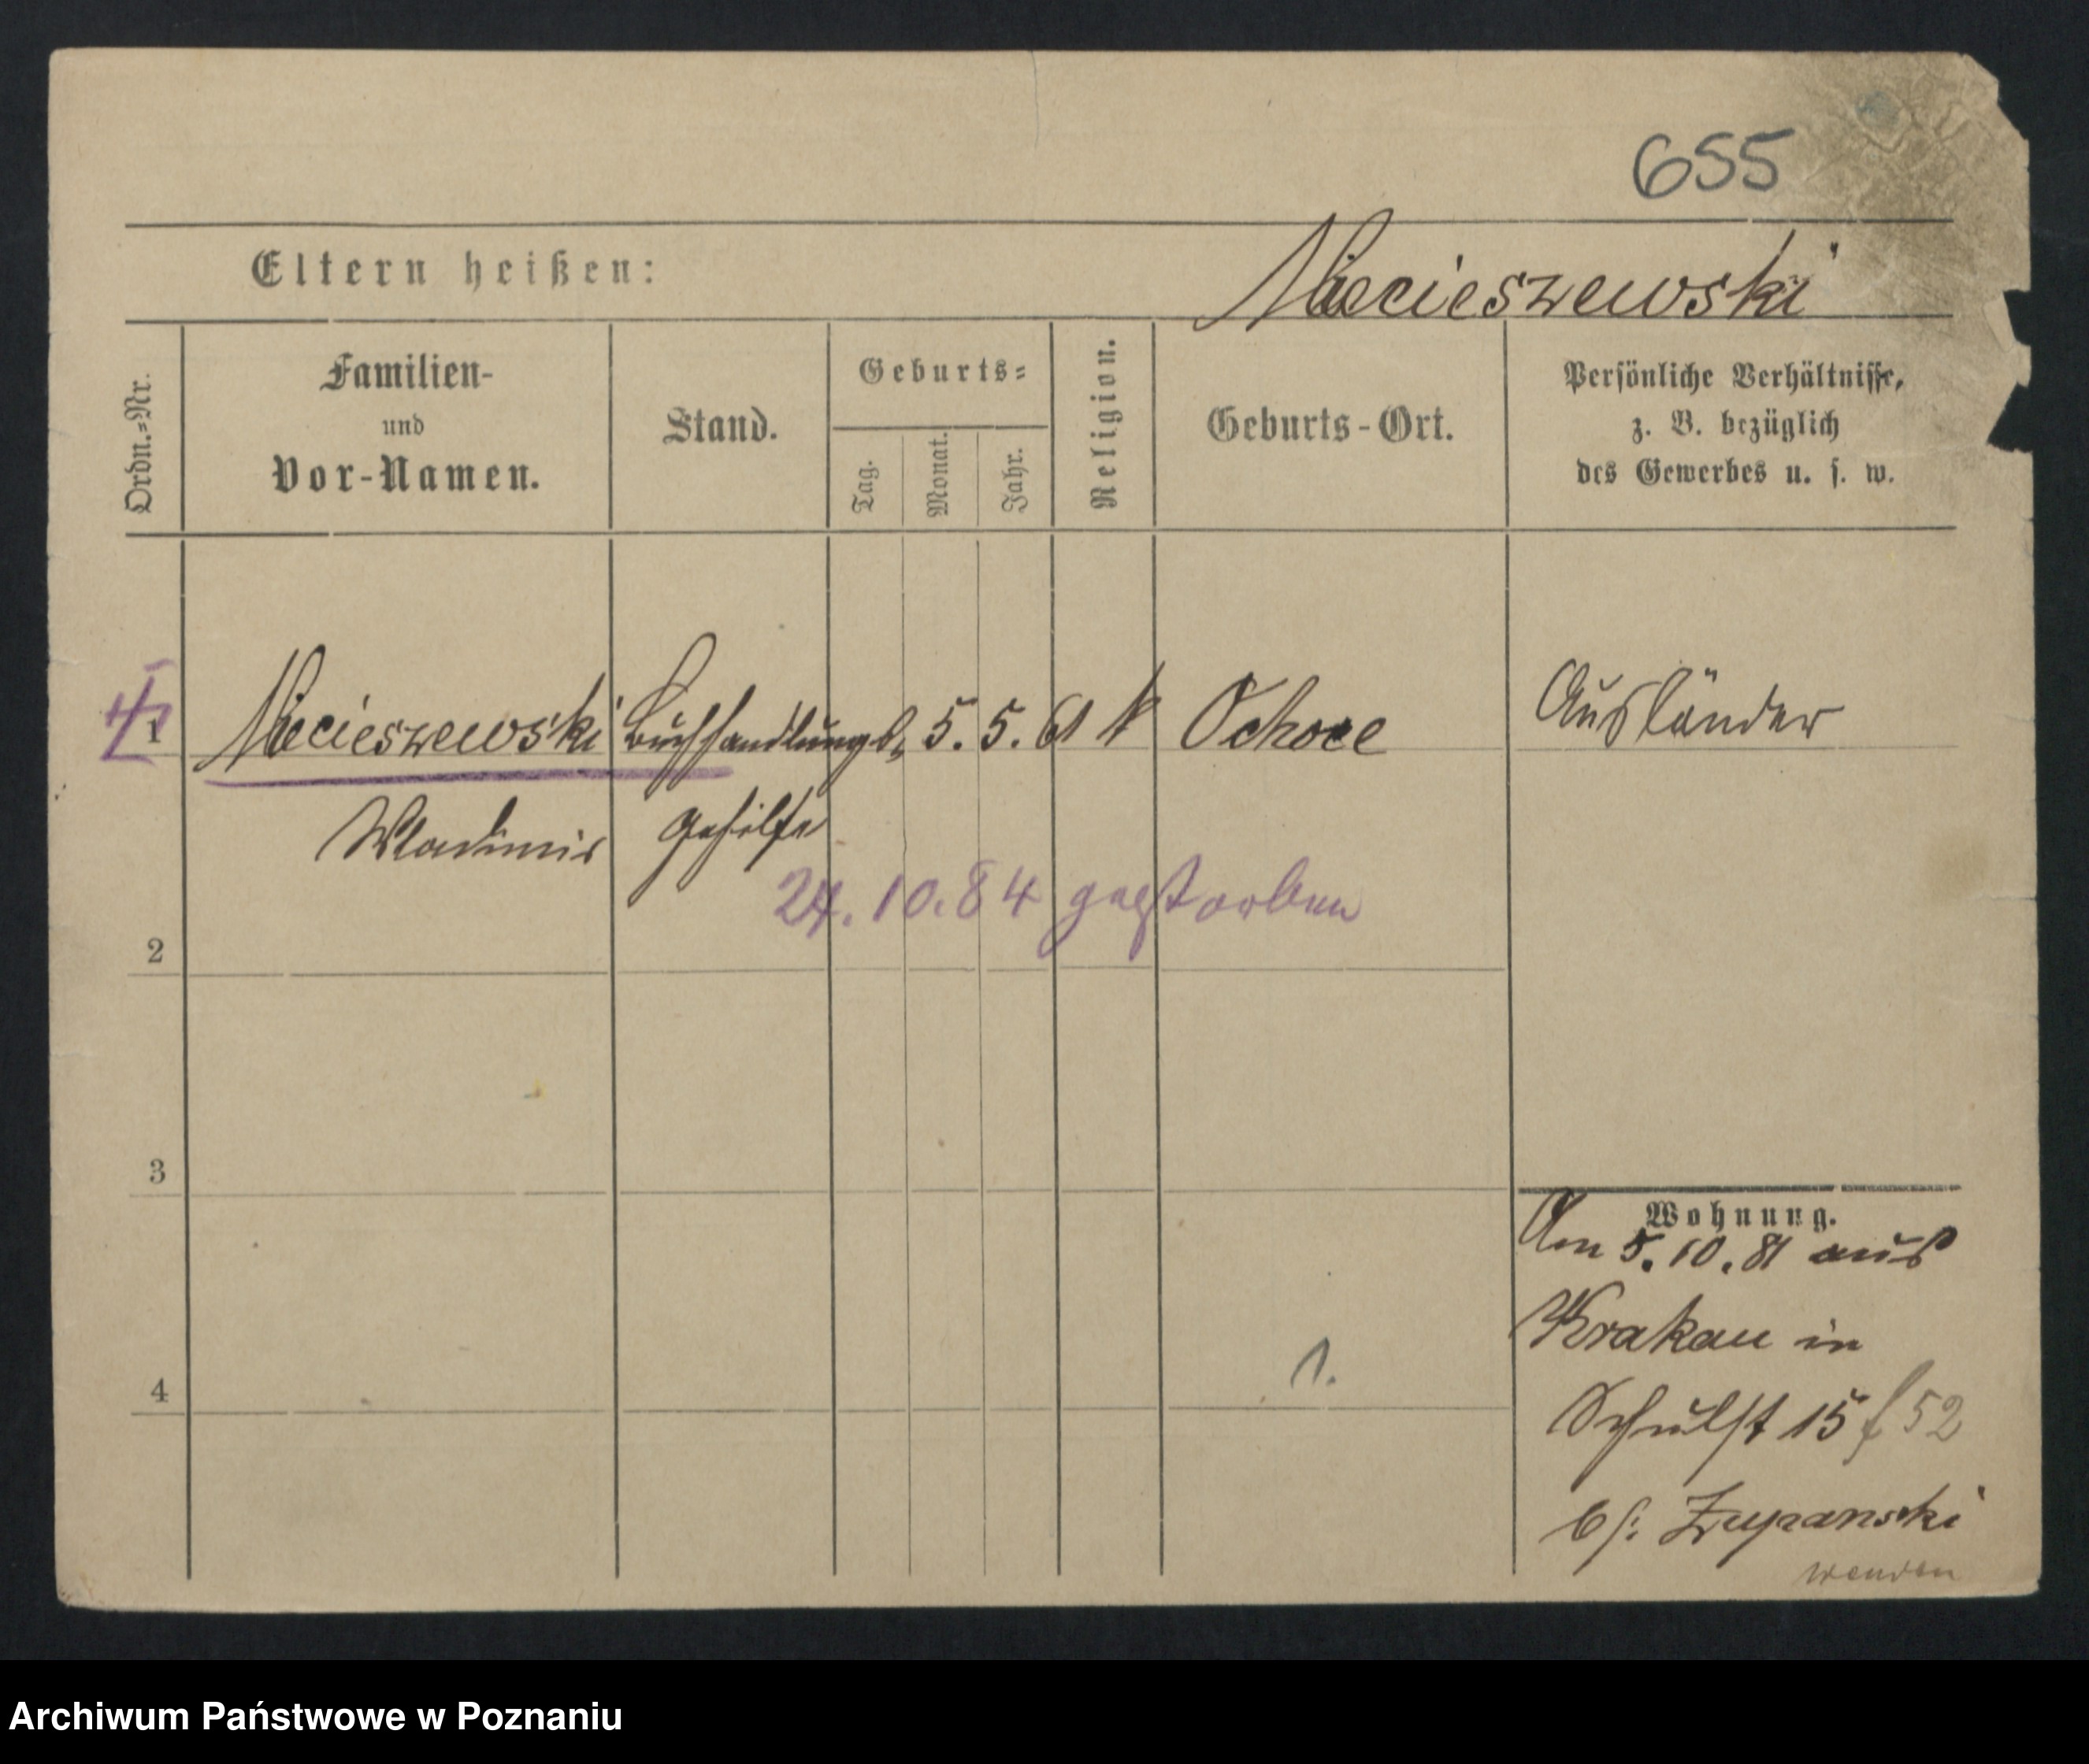 655
Eltern heißen:
Mecieszewski
Ordn.-Nr.
Familien-
und
Vor-Namen.
Stand.
Geburts-
Tag.
Monat.
Jahr.
Religion.
Geburts-Ort.
Persönliche Verhältnisse,
z. B. bezüglich
des Gewerbes u. s. w.
1 Mecieszewski Buchhandlungs 5. 5. 61 k Ochoce Ausländer
Wladimir Gehilfe
24. 10. 84 gestorben
2
3
Wohnung.
Am 5. 10. 81 aus
Krakau in
4
1.
Schulst 15 f 52
bh: Zupanski
wenden
Archiwum Państwowe w Poznaniu